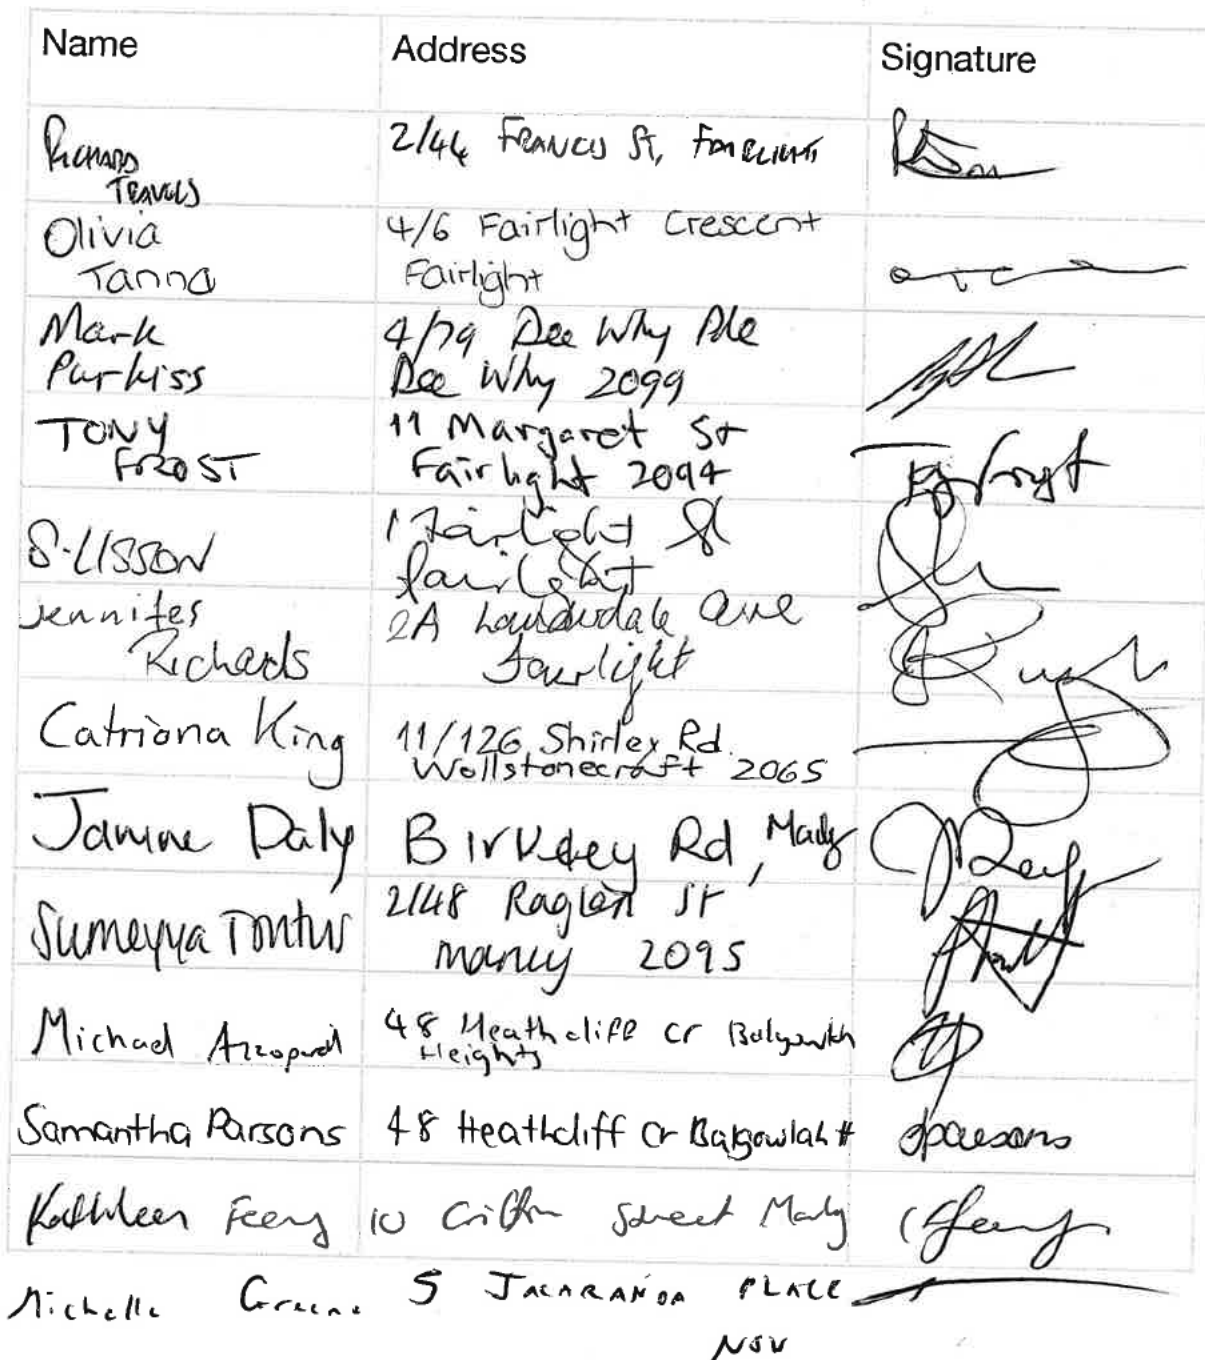 Name Address Signature
Richard 2/44 Francis St, Fairlight
Travers
Olivia 4/6 Fairlight Crescent
Tanna Fairlight
Mark 4/79 Dee Why Pde
Purkiss Dee Why 2099
TONY 11 Margaret St
FROST Fairlight 2094
S. LISSON 1 Fairlight St
Fairlight
Jennifer 2A Lauderdale Ave
Richards Fairlight
Catriona King 11/126 Shirley Rd
Wollstonecraft 2065
Janine Daly Birkley Rd, Manly
Sumeyya 2/48 Raglan St
Manly 2095
Michael Azzopardi 48 Heathcliff Cr Balgowlah
Heights
Samantha Parsons 48 Heathcliff Cr Balgowlah H sparsons
Kathleen Feeny 10 Street Manly
Michelle Greene 5 JACARANDA PLACE
NSW